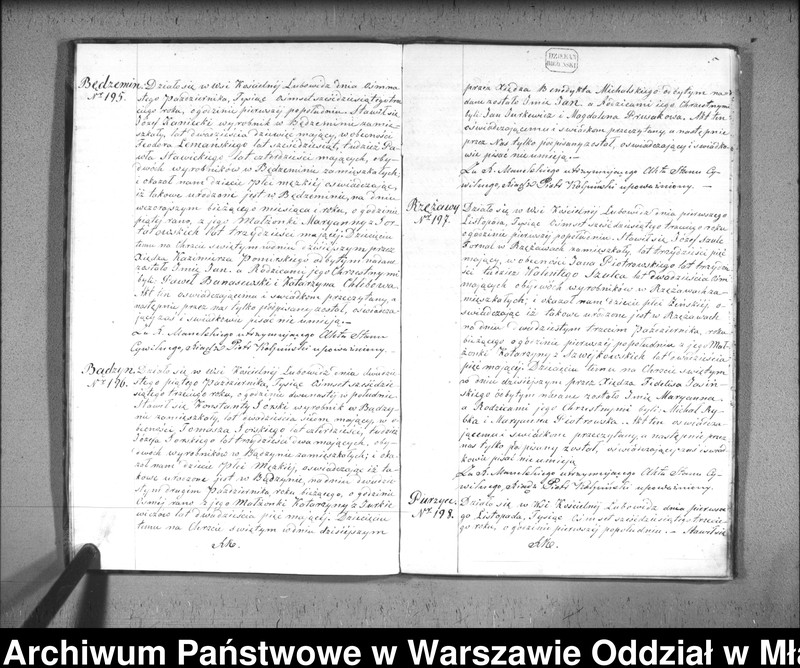 Będzemin
Nr 195.
Działo się w Wsi Kościelnej Lubowidz dnia Ośmna-
stego Października, Tysiąc Ośmset sześćdziesiątego trze-
ciego roku, o godzinie pierwszej popołudniu. Stawił się
Józef Kanicki wyrobnik w Będzeminie zamie-
szkały, lat dwadzieścia dziewięć mający, w obecności
Teodora Lemańskiego lat sześćdziesiąt, tudzież Pa-
wła Stawickiego lat czterdzieści mających, oby-
dwóch wyrobników w Będzeminie zamieszkałych;
i okazał nam dziecię płci męzkiej oświadczając,
iż takowe urodzone jest w Będzeminie, na dniu
wczorajszym bieżącego miesiąca i roku, o godzinie
piątej rano, z jego Małżonki Maryanny z
lat trzydzieści mającej. Dziecięciu
temu na Chrzcie świętym w dniu dzisiejszym przez
Księdza Kazimierza odbytym nadane
zostało Imie Jan. a Rodzicami jego Chrzestnymi
byli: Paweł Banasewski i Katarzyna Chlebowa.
Akt ten oświadczającemu i świadkom przeczytany, a
następnie przez nas tylko podpisany został, oświadcza-
jący zaś i świadkowie pisać nie umieją.—
Za A. Manelskiego utrzymującego Akta Stanu
Cywilnego, Ksiądz Piotr upoważniony.
Bądzyn.
Nr 196.
Działo się w Wsi Kościelnej Lubowidz dnia dwudzie-
stego piątego Października, Tysiąc Ośmset sześćdzie-
siątego trzeciego roku, o godzinie dwunastej w południe
Stawił się Konstanty Górski wyrobnik w Bądzy-
nie zamieszkały, lat dwadzieścia siedm mający, w o-
becności Tomasza Górskiego lat czterdzieści, tudzież
Józefa Górskiego lat trzydzieści dwa mających, oby-
dwóch wyrobników w Bądzynie zamieszkałych; i oka-
zał nam dziecię Płci Męzkiej, oświadczając iż ta-
kowe urodzone jest w Bądzynie, na dniu dwudzie-
stym drugim Października roku bieżącego, o godzinie
Ośmej rano z jego Małżonki Katarzyny z Turkie-
wiczów lat dwadzieścia pięć mającej. Dziecięciu
temu na Chrzcie świętym w dniu dzisiejszym
przez Księdza Benedykta Michalskiego odbytym na-
dane zostało Imie Jan. a Rodzicami jego Chrzestnymi
byli Jan Turkewicz i Magdalena Prusakowa. Akt ten
oświadczającemu i świadkom przeczytany, a następnie
przez Nas tylko podpisany został, oświadczający i świadko-
wie pisać nie umieją.—
Za A. Manelskiego utrzymującego Akta Stanu Cy-
wilnego, Ksiądz Piotr upoważniony.—
Rzężawy
Nr 197.
Działo się w Wsi Kościelnej Lubowidz dnia pierwszego
Listopada, Tysiąc Ośmset sześćdziesiątego trzeciego roku
o godzinie pierwszej popołudniu. Stawił się Józef Szulc
Fornal w Rzężawach zamieszkały, lat trzydzieści pięć
mający, w obecności Jana Piotrowskiego lat trzydzie-
ści tudzież Walentego Szulca lat dwadzieścia ośm
mających obydwóch wyrobników w Rzężawach za-
mieszkałych; i okazał nam dziecię płci Żeńskiej, o-
świadczając iż takowe urodzone jest w Rzężawach
na dniu dwudziestym trzecim Października, roku
bieżącego o godzinie pierwszej popołudniu z jego Mał-
żonki Katarzyny z lat dwadzieścia
pięć mającej. Dziecięciu temu na Chrzcie świętym
w dniu dzisiejszym przez Księdza Fidelisa Jasiń-
skiego odbytym nadane zostało Imie Maryanna.
a Rodzicami jego chrzestnymi byli: Michał Ry-
bka i Maryanna Piotrowska. Akt ten oświadcza-
jącemu i świadkom przeczytany, a następnie przez
nas tylko podpisany został, oświadczający zaś i świad-
kowie pisać nie umieją
Za A. Manelskiego utrzymującego Akta Stanu Cy-
wilnego, Ksiądz Piotr upoważniony.
Purzyce.
Nr 198.
Działo się w Wsi Kościelnej Lubowidz dnia pierwsze-
go Listopada, Tysiąc Ośmset sześćdziesiątego trzecie-
go roku, o godzinie pierwszej popołudniu.— Stawił się
Archiwum Państwowe w Warszawie Oddział w Mła